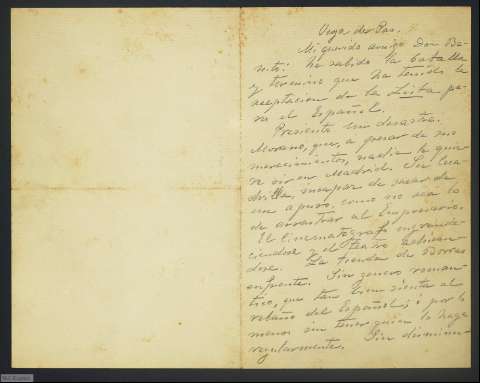 Vega de Pas.
Mi querido amigo Don Be-
nito: he sabido la batalla
y teremine que ha tenido la
aceptacion de la Lista pa-
ra el Español.
Presiento un desastre.
Morano, que, a pesar de sus
merecimientos, nadie le quie
re oir en Madrid. Su Cua-
drilla, incapaz de sacar de
un apuro, como no sea la
de arrastrar al Empresario.
El Cinematógrafo engrande-
ciendose y el teatro achican
dose. La tienda de Borras
enfrente. Sin genero roman-
tico, que tan bien sienta al
retablo del Español, ó por lo
menos sin tener quien lo haga
regularmente. Sin disminu-